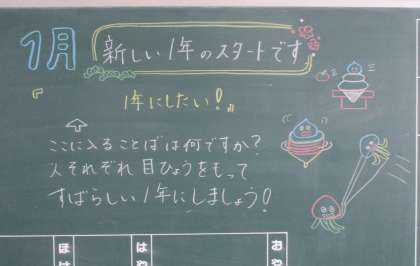 1月
新しい1年のスタートです
『 1年にしたい!』
ここに入ることばは何ですか?
人それぞれ目ひょうをもって
すばらしい1年にしましょう!
ほけ
はや
おや